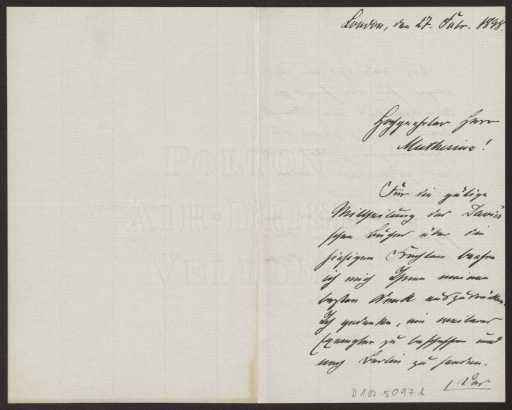 London, den 27. Febr. 1898.
Hochgeehrter Herr
Muthesius!
Für die gütige
Mittheilung der Davis
schen Bücher über die
hiesigen Kirchen beehre
ich mich Ihnen meinen
besten Dank auszudrücken.
Ich gedenke, ein weiteres
Exemplar zu beschaffen und
nach Berlin zu senden.
POLTON
VELLUM